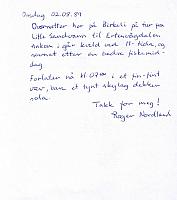 Onsdag 02.08.89
Overnatter her på Birkeli på tur fra
Lille Sandvann til Ertenvågdalen
ankom i går kveld ved 11-tiden, og
sovnet etter en bedre fiskemid-
dag.
Forlater nå kl. 07⁰⁰ i et fin-fint
vær, bare et tynt skylag dekker
sola.
Takk for meg!
Roger Nordland